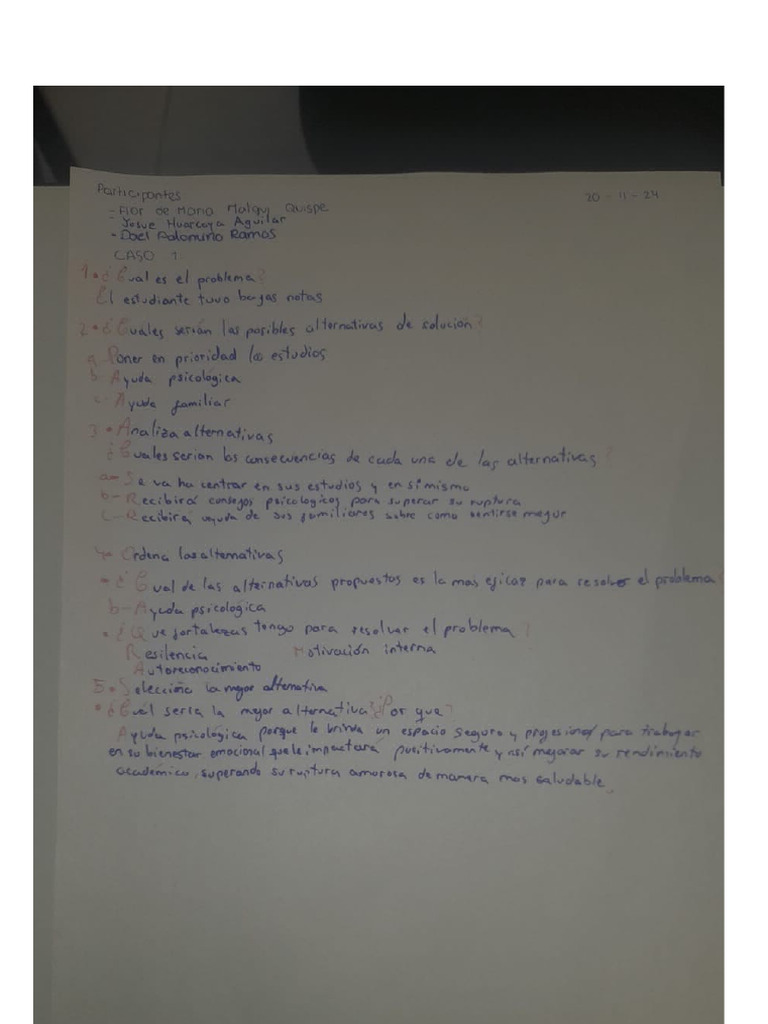 Participantes
20 - 11 - 24
- Flor de Maria Malqui Quispe
- Josue Huarcaya Aguilar
- Doel Palomino Ramos
CASO 1
1. ¿Cual es el problema?
El estudiante tuvo bajas notas
2. ¿Cuales serian las posibles alternativas de solucion?
a. Poner en prioridad los estudios
b- Ayuda psicológica
c- Ayuda familiar
3. Analiza alternativas
¿Cuales serian las consecuencias de cada una de las alternativas?
a- Se va ha centrar en sus estudios y en si mismo
b- Recibirá consejos psicologicos para superar su ruptura
c- Recibira ayuda de sus familiares sobre como sentirse mejor
4. Ordena las alternativas
• ¿Cual de las alternativas propuestas es la mas eficaz para resolver el problema?
b- Ayuda psicológica
• ¿Que fortalezas tengo para resolver el problema?
Resilencia Motivación interna
Autoreconocimiento
5. Selecciona la mejor alternativa
• ¿Cuál seria la mejor alternativa? ¿Por que?
Ayuda psicológica porque le brinda un espacio seguro y profesional para trabajar
en su bienestar emocional que le impactará positivamente y asi mejorar su rendimiento
académico, superando su ruptura amorosa de manera mas saludable.